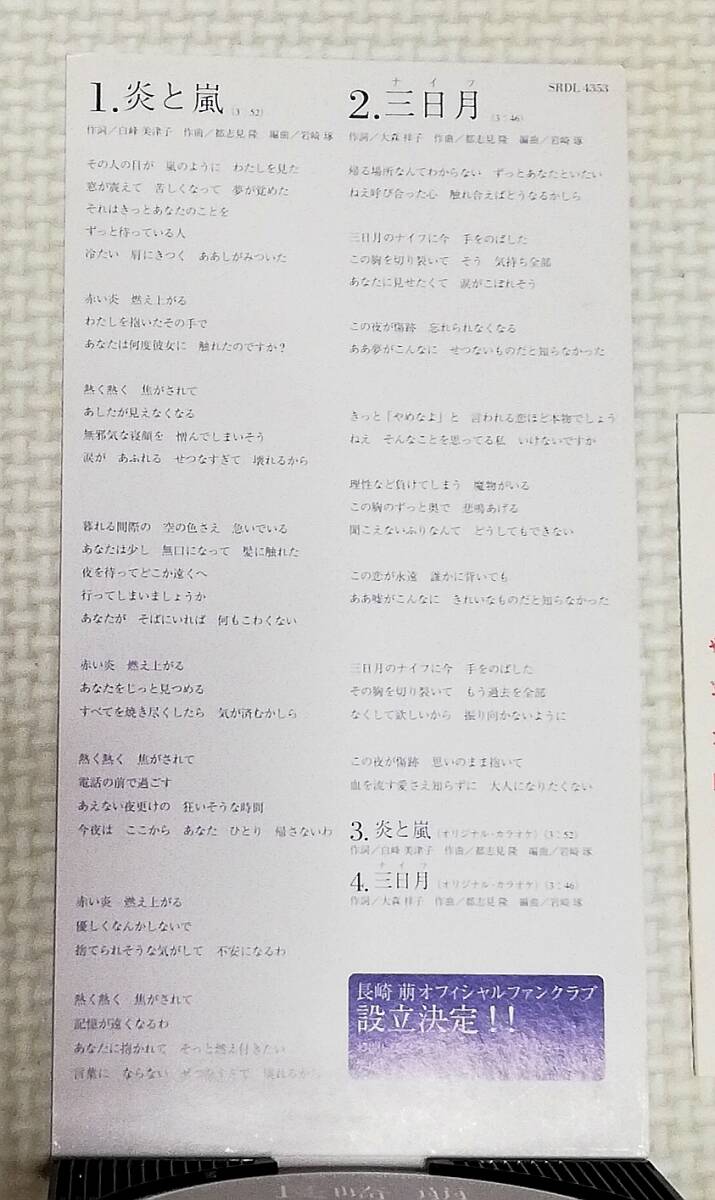 1.炎と嵐 (3:52)
作詞/白峰 美津子 作曲/都志見 隆 編曲/岩崎 琢
その人の目が 嵐のように わたしを見た
窓が震えて 苦しくなって 夢が覚めた
それはきっとあなたのことを
ずっと待っている人
冷たい 肩にきつく ああしがみついた
赤い炎 燃え上がる
わたしを抱いたその手で
あなたは何度彼女に 触れたのですか?
熱く熱く 焦がされて
あしたが見えなくなる
無邪気な寝顔を 憎んでしまいそう
涙が あふれる せつなすぎて 壊れるから
暮れる間際の 空の色さえ 急いでいる
あなたは少し 無口になって 髪に触れた
夜を待ってどこか遠くへ
行ってしまいましょうか
あなたが そばにいれば 何もこわくない
赤い炎 燃え上がる
あなたをじっと見つめる
すべてを焼き尽くしたら 気が済むかしら
熱く熱く 焦がされて
電話の前で過ごす
あえない夜更けの 狂いそうな時間
今夜は ここから あなた ひとり 帰さないわ
赤い炎 燃え上がる
優しくなんかしないで
捨てられそうな気がして 不安になるわ
熱く熱く 焦がされて
記憶が遠くなるわ
あなたに抱かれて そっと燃え付きたい
言葉に ならない せつなすぎて 壊れるから
SRDL 4353
ナイフ
2.三日月 (3:46)
作詞/大森 祥子 作曲/都志見 隆 編曲/岩崎 琢
帰る場所なんてわからない ずっとあなたといたい
ねえ呼び合った心 触れ合えばどうなるかしら
三日月のナイフに今 手をのばした
この胸を切り裂いて そう 気持ち全部
あなたに見せたくて 涙がこぼれそう
この夜が傷跡 忘れられなくなる
ああ夢がこんなに せつないものだと知らなかった
きっと「やめなよ」と 言われる恋ほど本物でしょう
ねえ そんなことを思ってる私 いけないですか
理性など負けてしまう 魔物がいる
この胸のずっと奥で 悲鳴あげる
聞こえないふりなんて どうしてもできない
この恋が永遠 誰かに背いても
ああ嘘がこんなに きれいなものだと知らなかった
三日月のナイフに今 手をのばした
その胸を切り裂いて もう過去を全部
なくして欲しいから 振り向かないように
この夜が傷跡 思いのまま抱いて
血を流す愛さえ知らずに 大人になりたくない
3.炎と嵐 (オリジナル・カラオケ) (3:52)
作詞/白峰 美津子 作曲/都志見 隆 編曲/岩崎 琢
ナイフ
4.三日月 (オリジナル・カラオケ) (3:46)
作詞/大森 祥子 作曲/都志見 隆 編曲/岩崎 琢
長崎 萠オフィシャルファンクラブ
設立決定!!